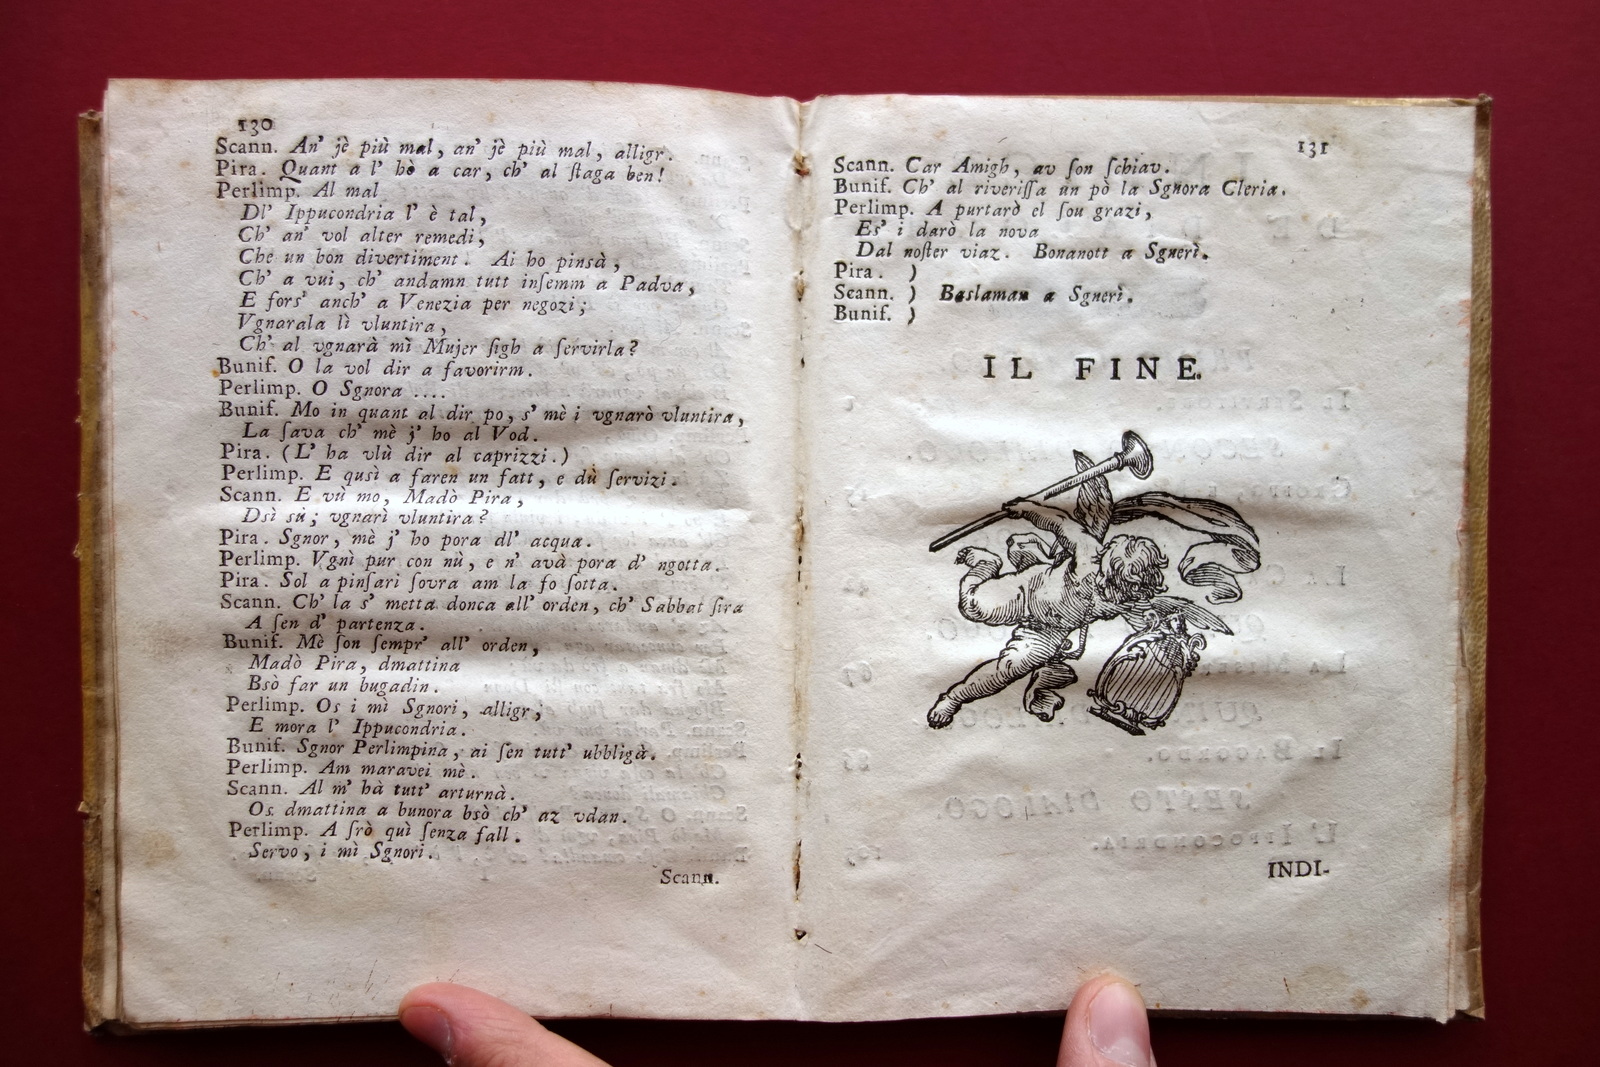 130
Scann. An' jè più mal, an' jè più mal, alligr.
Pira. Quant a l' hò a car, ch' al ſtaga ben!
Perlimp. Al mal
Dl' Ippucondria l' è tal,
Ch' an' vol alter remedi,
Che un bon divertiment. Ai ho pinsà,
Ch' a vui, ch' andamn tutt inſemm a Padva,
E fors' anch' a Venezia per negozi;
Vgnarala lì vluntira,
Ch' al vgnarà mì Mujer ſigh a ſervirla?
Bunif. O la vol dir a favorirm.
Perlimp. O Sgnora ....
Bunif. Mo in quant al dir po, s' mè i vgnarò vluntira,
La ſava ch' mè j' ho al Vod.
Pira. (L' ha vlù dir al caprizzi.)
Perlimp. E qusì a faren un fatt, e dù ſervizi.
Scann. E vù mo, Madò Pira,
Dsì sù; vgnarì vluntira?
Pira. Sgnor, mè j' ho pora dl' acqua.
Perlimp. Vgnì pur con nù, e n' avà pora d' ngotta.
Pira. Sol a pinſari ſovra am la fo ſotta.
Scann. Ch' la s' metta donca all' orden, ch' Sabbat ſira
A ſen d' partenza.
Bunif. Mè ſon ſempr' all' orden,
Madò Pira, dmattina
Bsò far un bugadin.
Perlimp. Os i mì Sgnori, alligr,
E mora l' Ippucondria.
Bunif. Sgnor Perlimpina, ai ſen tutt' ubbligà.
Perlimp. Am maravei mè.
Scann. Al m' hà tutt' arturnà.
Os dmattina a bunora bsò ch' az vdan.
Perlimp. A ſrò quì ſenza fall.
Servo, i mì Sgnori.
Scann.
131
Scann. Car Amigh, av ſon ſchiav.
Bunif. Ch' al riveriſſa un pò la Sgnora Cleria.
Perlimp. A purtarò el ſou grazi,
Es' i darò la nova
Dal noſter viaz. Bonanott a Sgnerì.
Pira. )
Scann. ) Baslaman a Sgnerì.
Bunif. )
IL FINE.
INDI-